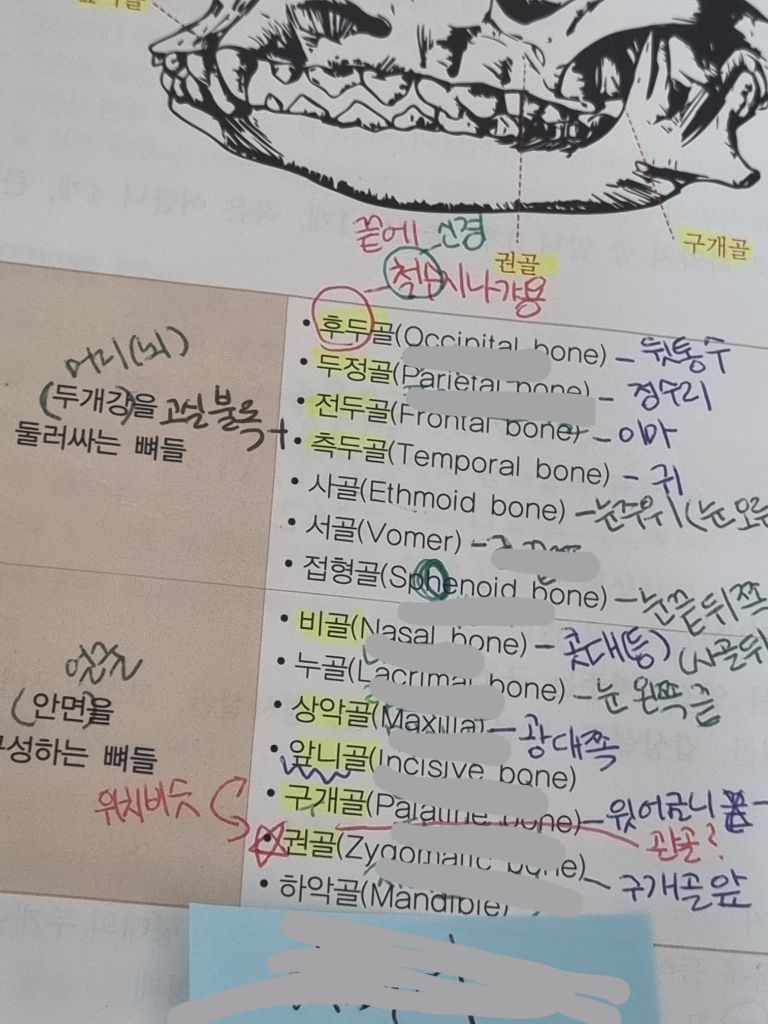 구개골
끝에 신경
권골
척수 지나가용
머리(뇌)
(두개강)을
둘러싸는 뼈들
고실 불록
• 후두골(Occipital bone) – 뒷통수
• 두정골(Parietal bone) – 정수리
• 전두골(Frontal bone) – 이마
• 측두골(Temporal bone) – 귀
• 사골(Ethmoid bone) – 눈주위(눈
• 서골(Vomer) –
• 접형골(Sphenoid bone) – 눈끝 뒤쪽
얼굴
(안면)을
구성하는 뼈들
위치비슷
• 비골(Nasal bone) – 콧대(등) (사골뒤
• 누골(Lacrimal bone) – 눈 왼쪽 끝
• 상악골(Maxilla) – 광대쪽
• 앞니골(Incisive bone)
• 구개골(Palatine bone) – 윗어금니
관골?
• 권골(Zygomatic bone) – 구개골 앞
• 하악골(Mandible)